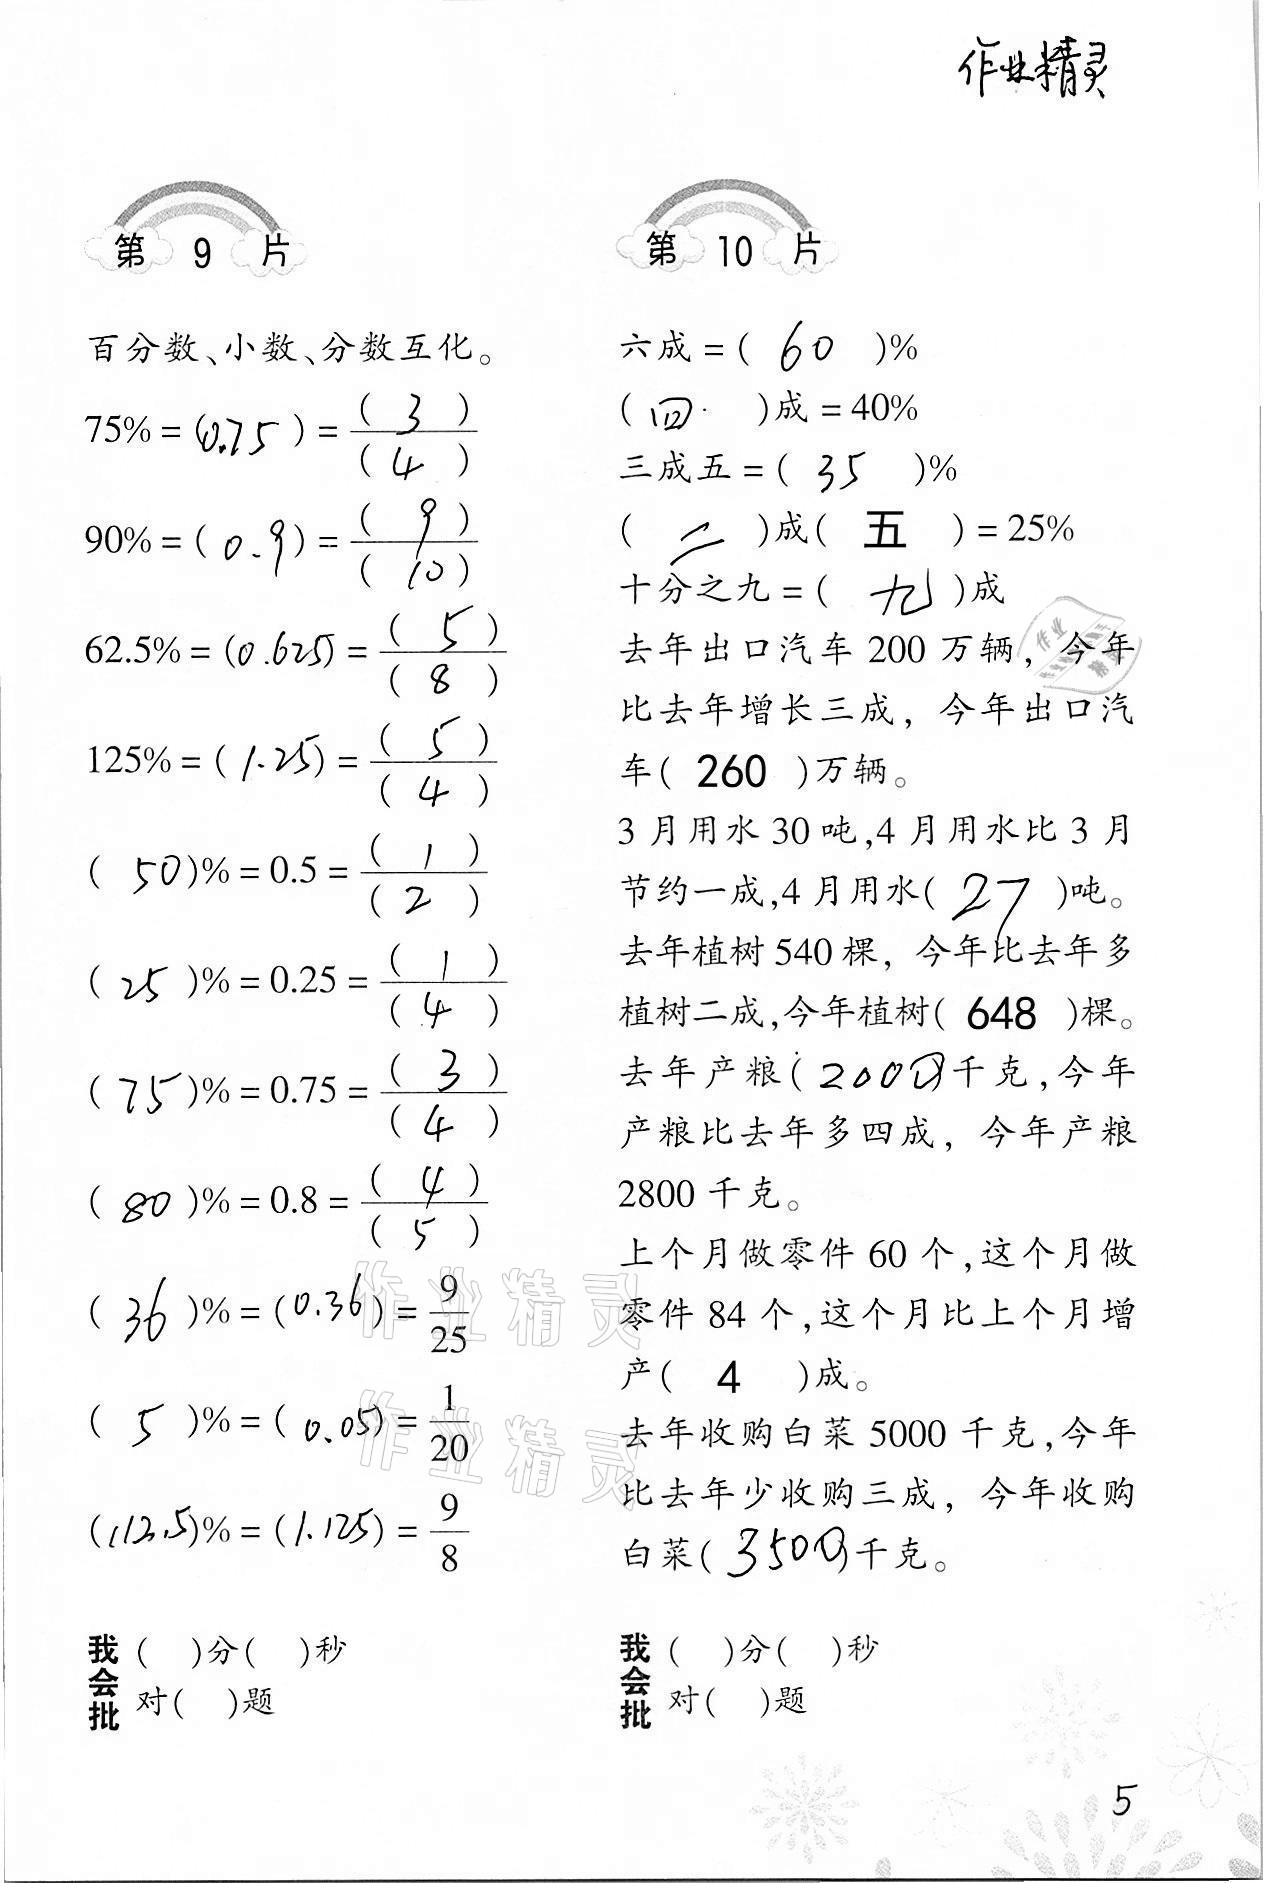 作业精灵
第 9 片
百分数、小数、分数互化。
75% = (0.75) = (3)/(4)
90% = (0.9) = (9)/(10)
62.5% = (0.625) = (5)/(8)
125% = (1.25) = (5)/(4)
(50)% = 0.5 = (1)/(2)
(25)% = 0.25 = (1)/(4)
(75)% = 0.75 = (3)/(4)
(80)% = 0.8 = (4)/(5)
(36)% = (0.36) = 9/25
(5)% = (0.05) = 1/20
(112.5)% = (1.125) = 9/8
我会批
( )分( )秒
对( )题
第 10 片
六成 = (60)%
(四)成 = 40%
三成五 = (35)%
(二)成(五) = 25%
十分之九 = (九)成
去年出口汽车 200 万辆，今年
比去年增长三成，今年出口汽
车(260)万辆。
3 月用水 30 吨,4 月用水比 3 月
节约一成,4 月用水(27)吨。
去年植树 540 棵，今年比去年多
植树二成,今年植树(648)棵。
去年产粮(2000)千克,今年
产粮比去年多四成，今年产粮
2800 千克。
上个月做零件 60 个,这个月做
零件 84 个,这个月比上个月增
产(4)成。
去年收购白菜 5000 千克,今年
比去年少收购三成，今年收购
白菜(3500)千克。
我会批
( )分( )秒
对( )题
作业精灵
作业精灵
作业精灵
5